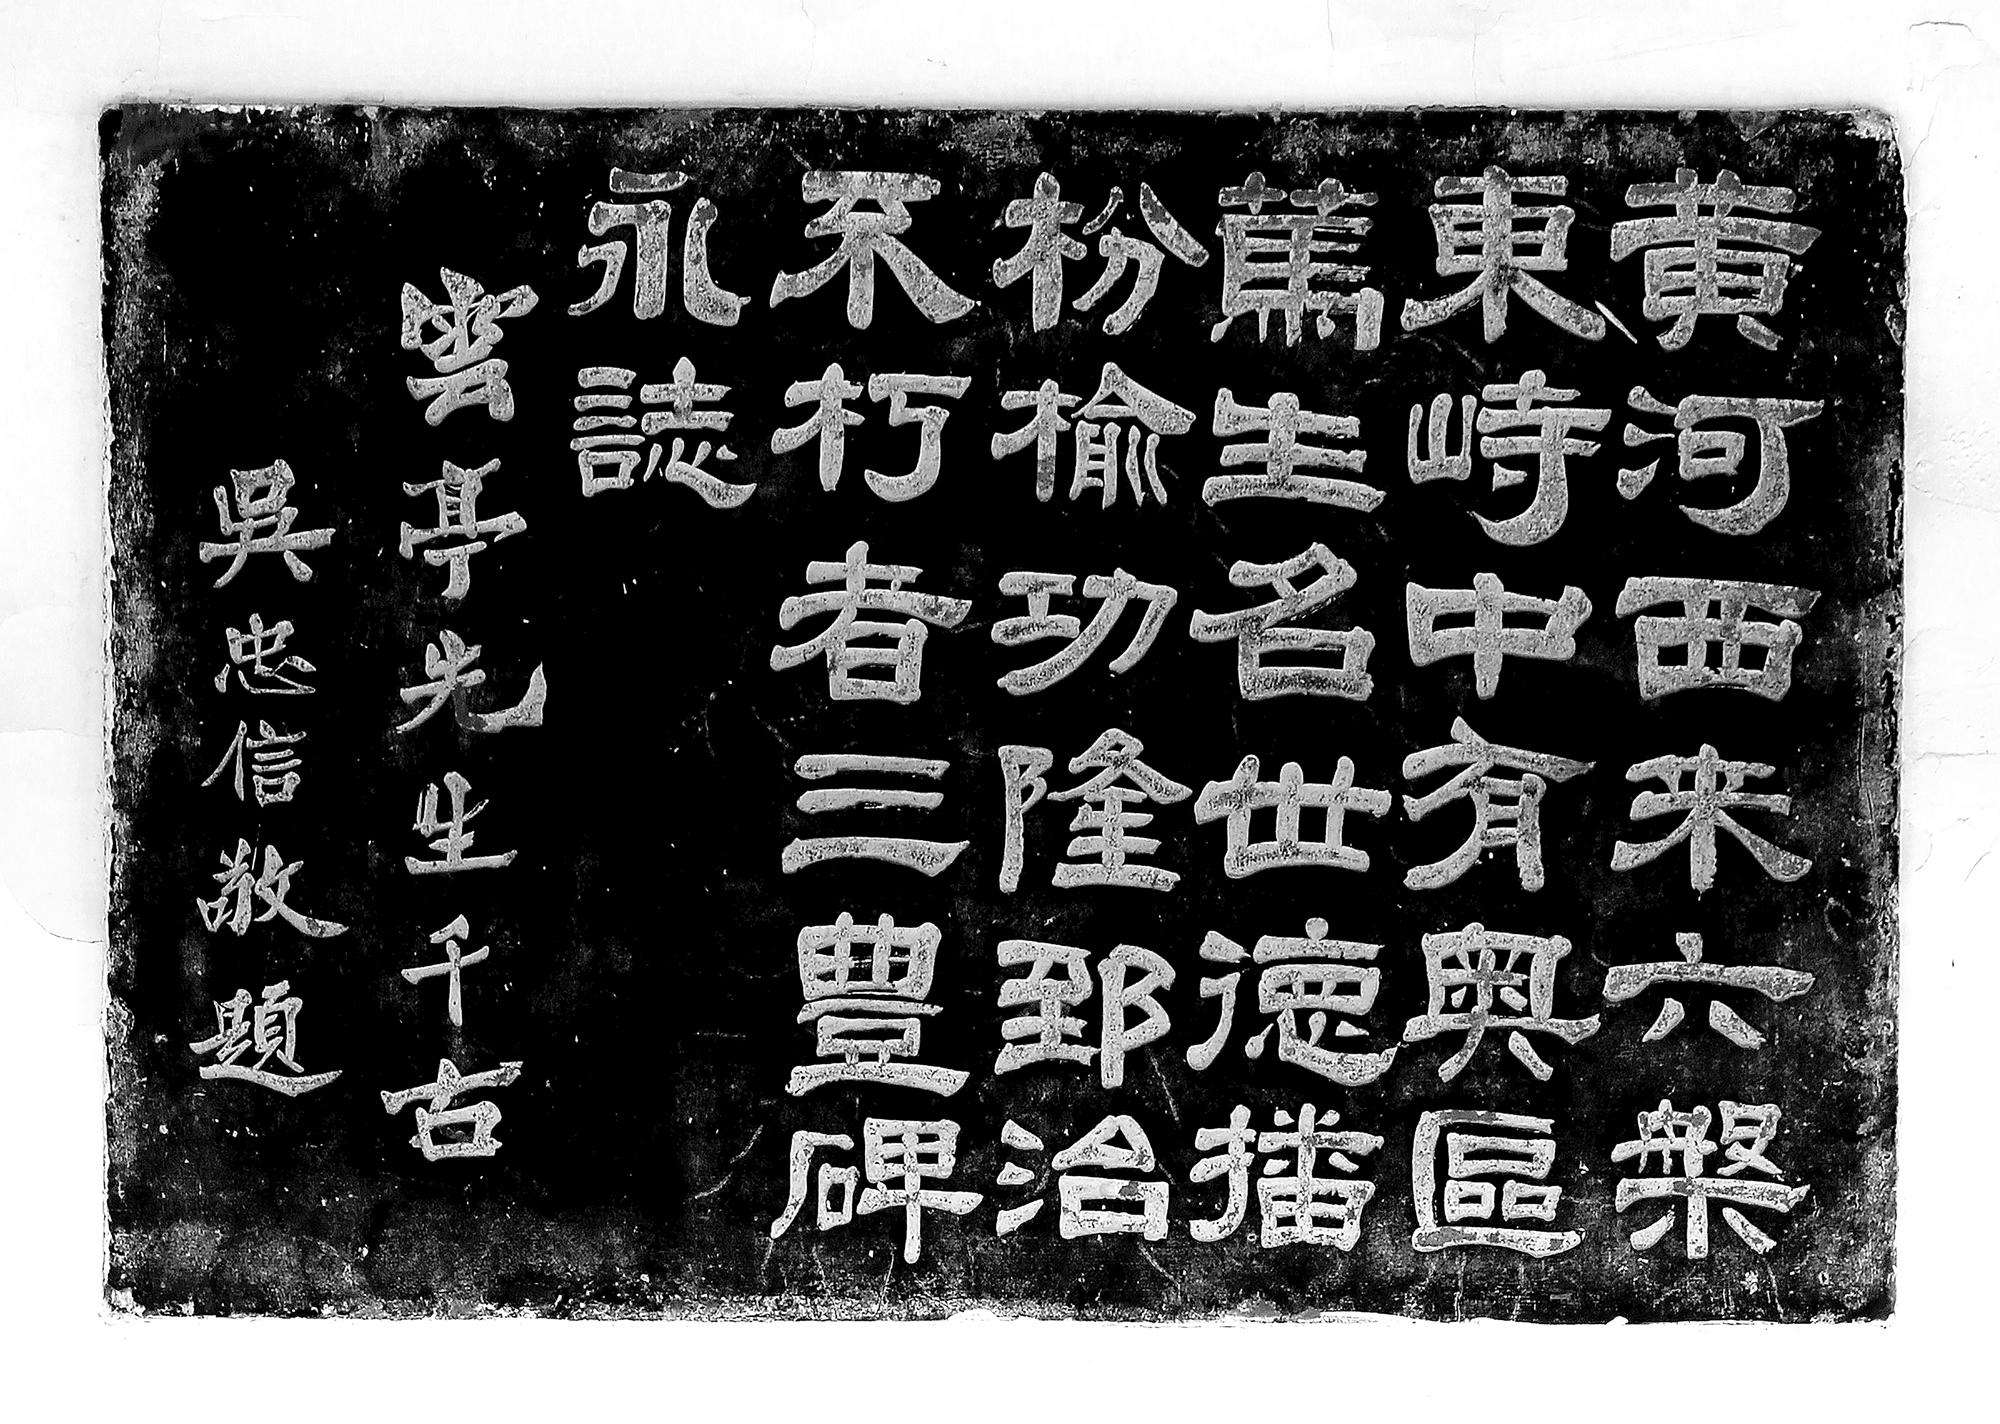 黄河西来六槃
東峙中有奧區
篤生名世德播
枌榆功隆郅治
不朽者三豐碑
永誌
雲亭先生千古
吳忠信敬題